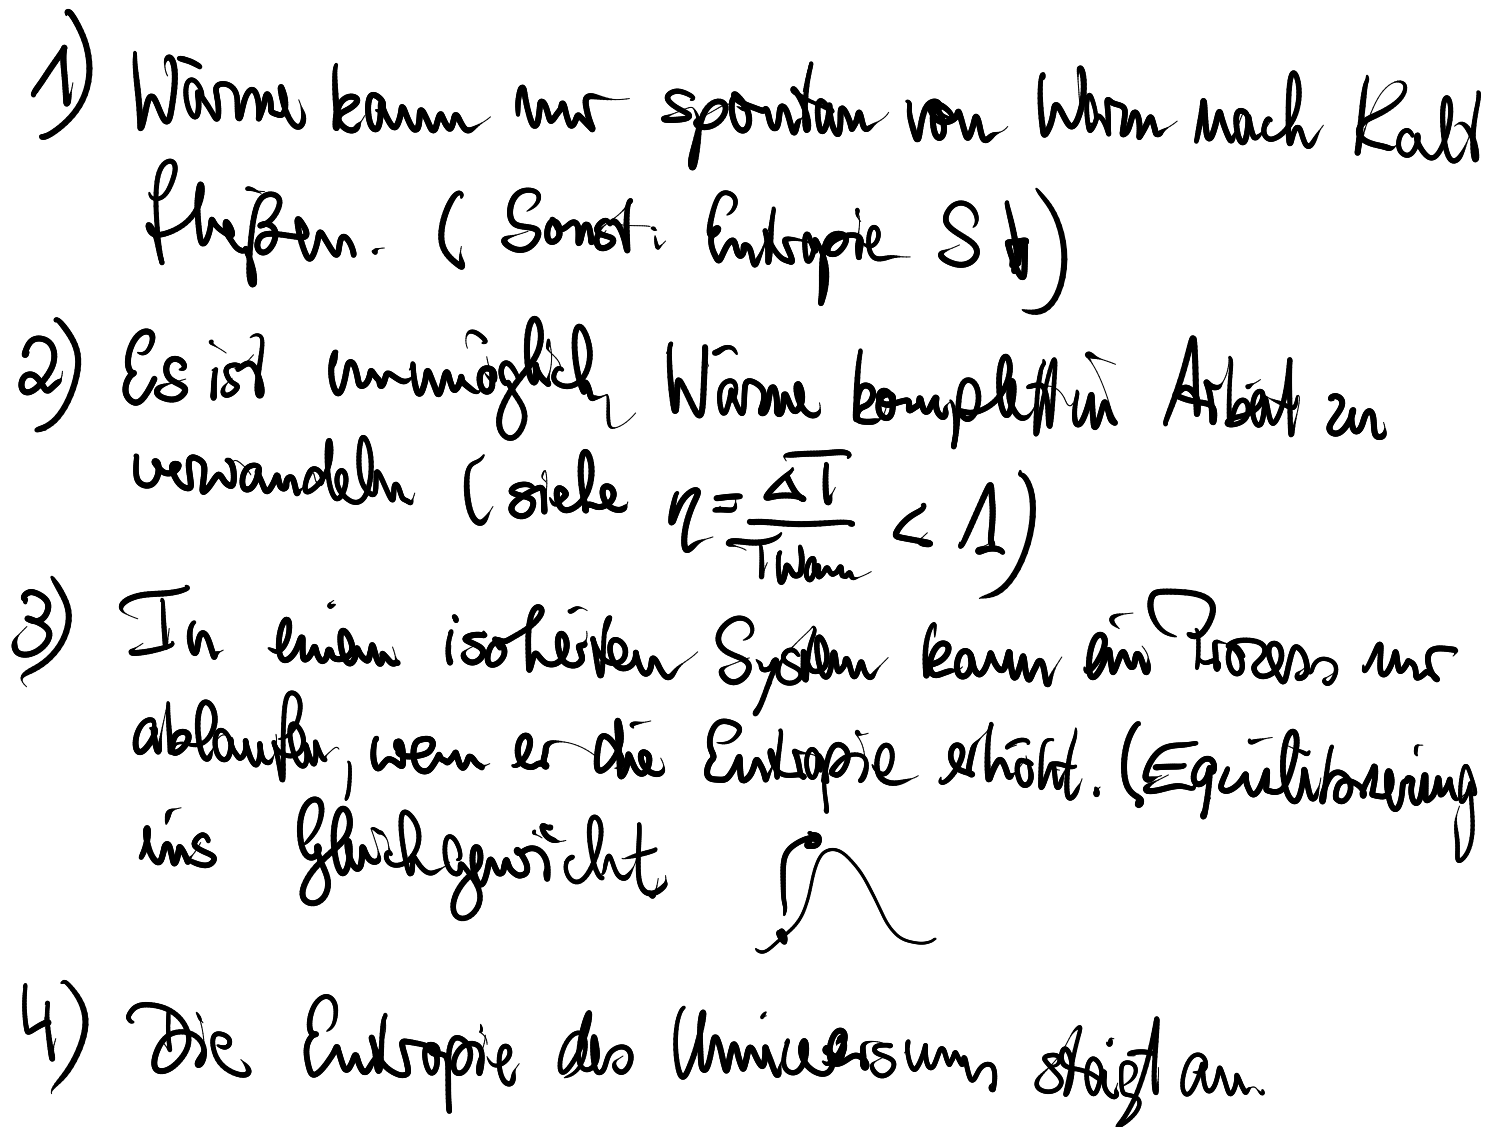 1) Wärme kann nur spontan von Warm nach Kalt
fließen. (Sonst: Entropie S ↓)
2) Es ist unmöglich Wärme komplett in Arbeit zu
verwandeln (siehe η = ΔT / T Warm < 1)
3) In einem isolierten System kann ein Prozess nur
ablaufen, wenn er die Entropie erhöht. (Equilibrierung
ins Gleichgewicht
4) Die Entropie des Universums steigt an.